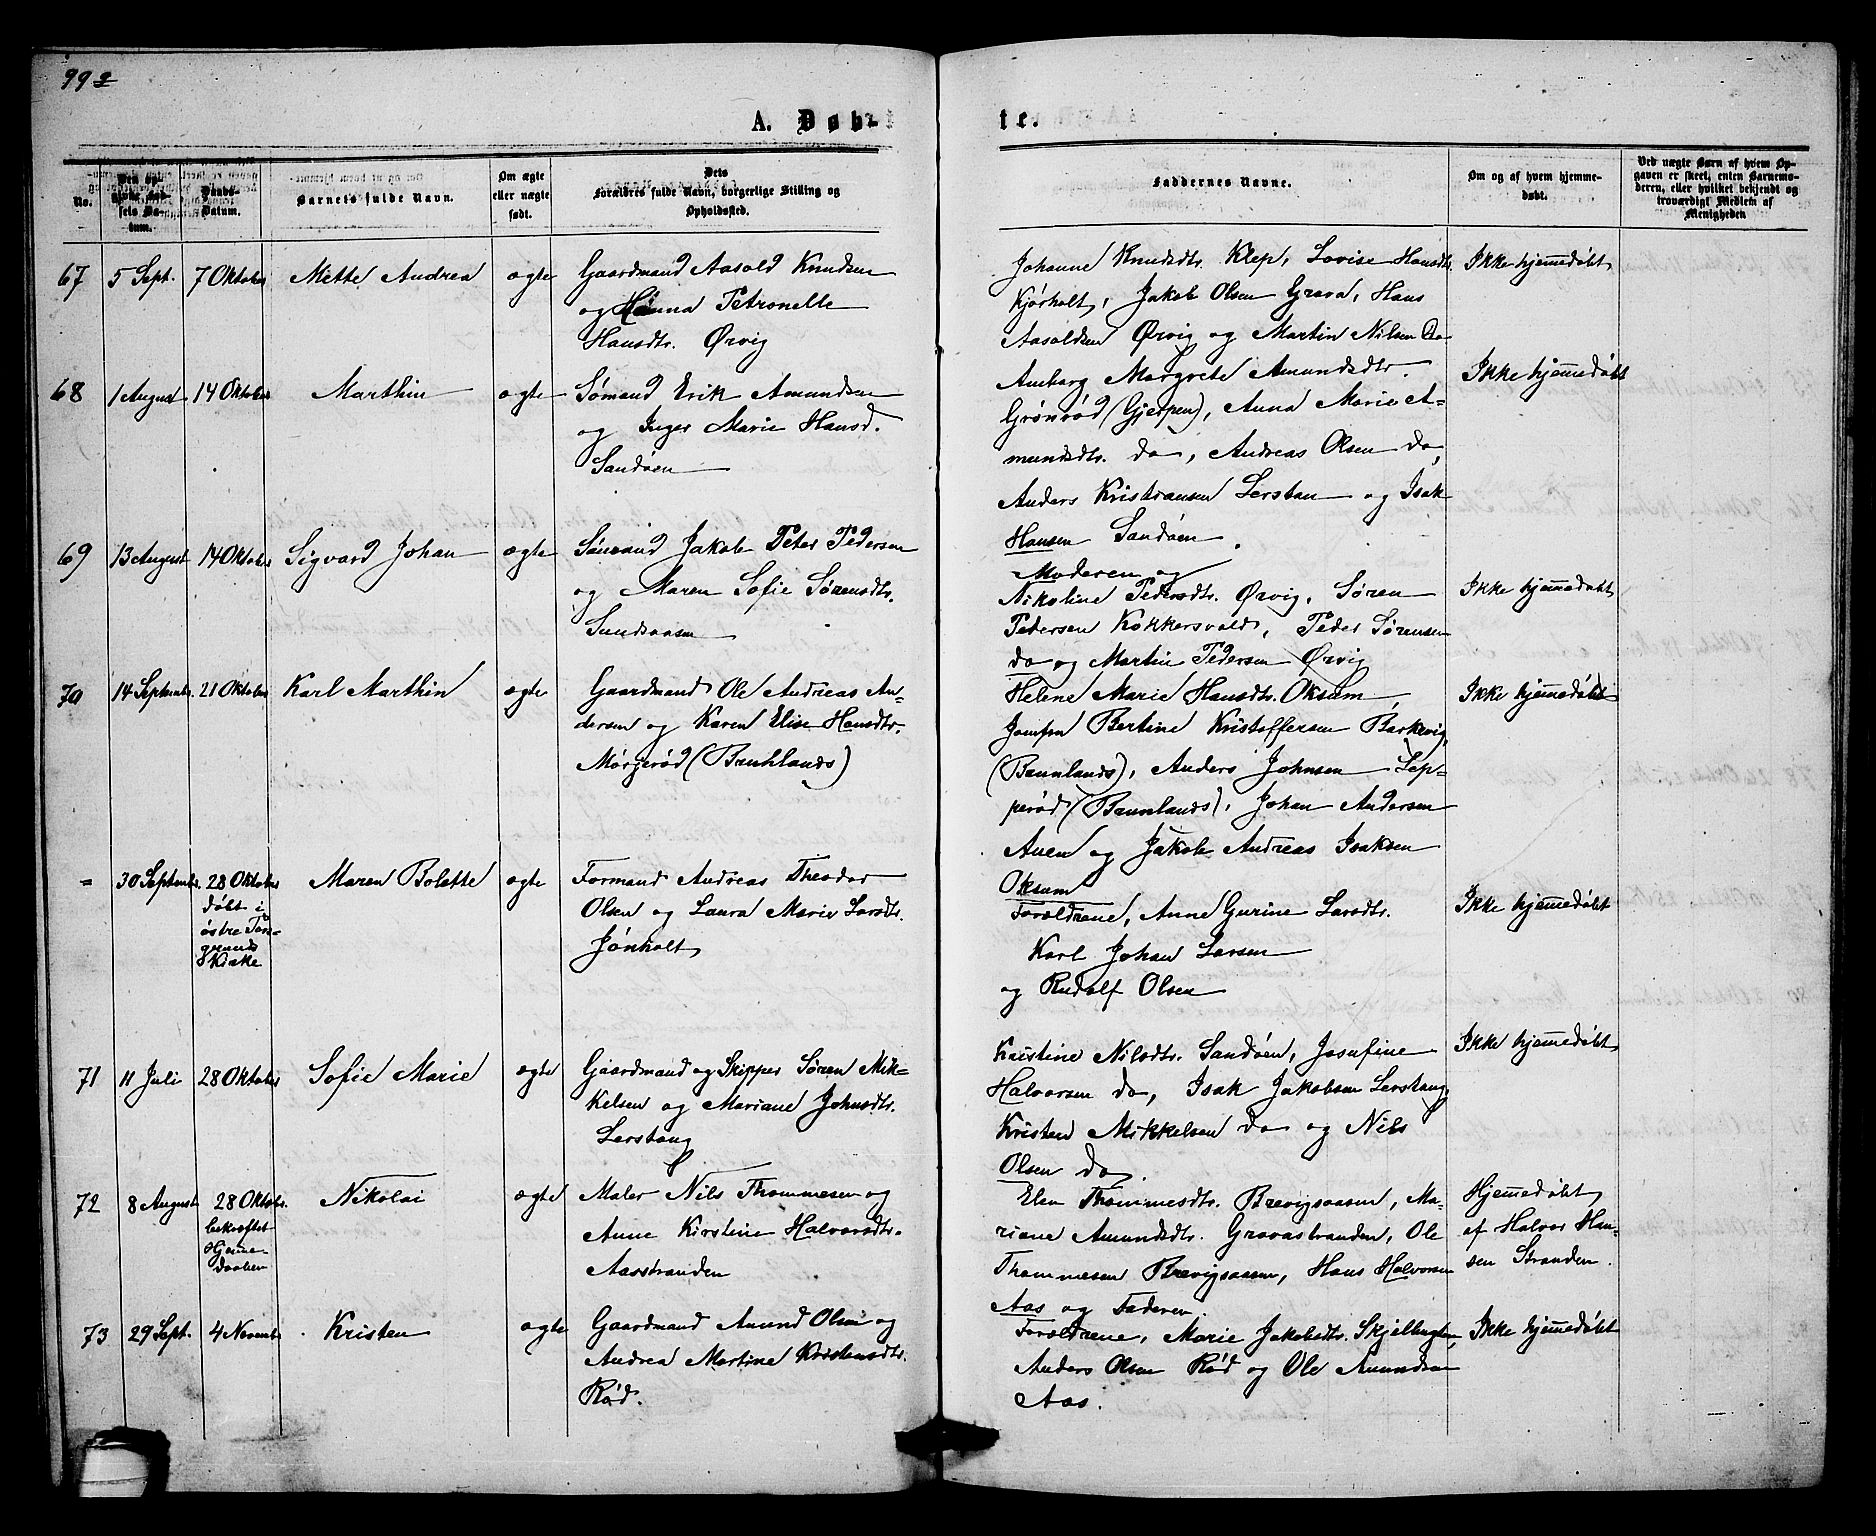 992
A. Døb-
te.
No.
Den op-
givne Fød-
sels Da-
tum.
Daabs-
Datum.
Barnets fulde Navn.
Om ægte
eller uægte
født.
Dets
Forældres fulde Navn, borgerlige Stilling og
Opholdssted.
Faddernes Navne.
Om og af hvem hjemme-
døbt.
Ved uægte Børn af hvem Op-
gaven er skeet, enten Barnemo-
deren, eller hvilket bekjendt og
troværdigt Medlem af
Menigheden
67 5 Sept. 7 Oktober Mette Andrea ægte
Gaardmand Aasold Knudsen
og Hanna Petronelle
Hansdtr. Ørvig
Johanne Knudsdtr. Klep, Lovise Hansdtr.
Kjørholt, Jakob Olsen Grava, Hans
Aasoldsen Ørvig og Martin Nilsen
Ikke hjemmedøbt
68 1 August 14 Oktober Marthin ægte
Sømand Erik Amundsen
og Inger Marie Hansd.
Sandøen
Amborg Margrete Amundsdtr.
Grønrød (Gjerpen), Anna Marie A-
mundsdtr. do, Andreas Olsen do,
Anders Kristiansen Lerstan og Isak
Hansen Sandøen.
Ikke hjemmedøbt
69 13 August 14 Oktober Sigvard Johan ægte
Sømand Jakob Peter Pedersen
og Maren Sofie Sørensdtr.
Sundsaasen
Moderen og
Nikoline Pedersdtr. Ørvig, Søren
Pedersen Kokkersvold, Peder Sørensen
do og Martin Pedersen Ørvig
Ikke hjemmedøbt
70 14 Septembr. 21 Oktober Karl Marthin ægte
Gaardmand Ole Andreas An-
dersen og Karen Elise Hansdtr.
Mørgerød (Bamhlands)
Helene Marie Hansdtr. Oksum,
Jomfru Bertine Kristoffersen Barkevig,
(Bamlands), Anders Johnsen Lep-
perød (Bamlands), Johan Andersen
Auen og Jakob Andreas Isaksen
Oksum
Ikke hjemmedøbt
= 30 Septembr. 28 Oktober
døbt i
østre Pors-
grunds
Kirke
Maren Bolette ægte
Formand Andreas Theodor
Olsen og Laura Marie Larsdtr.
Jønholt
Forældrene, Anne Gurine Larsdtr.
Karl Johan Larsen
og Rudolf Olsen
Ikke hjemmedøbt
71 11 Juli 28 Oktober Sofie Marie ægte
Gaardmand og Skipper Søren Mik-
kelsen og Mariane Johnsdtr.
Lerstang
Kristine Nilsdtr. Sandøen, Josefine
Halvorsen do, Isak Jakobsen Lerstang,
Kristen Mikkelsen do og Nils
Olsen do.
Ikke hjemmedøbt
72 8 August 28 Oktobr.
bekræftet
Hjemme
daaben
Nikolai ægte
Maler Nils Thommesen og
Anne Kirstine Halvorsdtr.
Aasstranden
Elen Thommesdtr. Brevigsaasen, Ma-
riane Amundsdtr. Gravastranden, Ole
Thommesen Brevigsaasen, Hans Halvorsen
Aas og Faderen.
Hjemmedøbt
af Halvor Han-
sen Stranden.
73 29 Sept. 4 Novembr Kristen ægte
Gaardmand Amund Olsen og
Andrea Martine Kristensdtr.
Rød.
Forældrene, Marie Jakobsdtr. Skjelbugten,
Anders Olsen Rød og Ole Amundsen
Aas.
Ikke hjemmedøbt